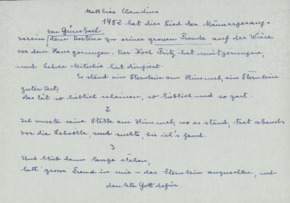 Matthias Claudius
1952 hat dies Lied der Männergesang-
von Günz
verein dem
zu seiner grossen Freude auf der Wiese
vor dem Hausgesungen. Der Karl Fritz hat mitgesungen,
und Lehrer hat dirigiert
Es stand ein Sternlein am Himmel, ein Sternlein
guter Art;
Das tät so lieblich scheinen, so lieblich und so zart
2
Ich wusste seine Stelle am Himmel, wo es stand, trat abends
vor die Schwelle und suchte, bis ich's fand.
3
Und blieb dann lange stehen,
hatt' grosse Freud in mir - das Sternlein anzusehen, und
dankte Gott dafür